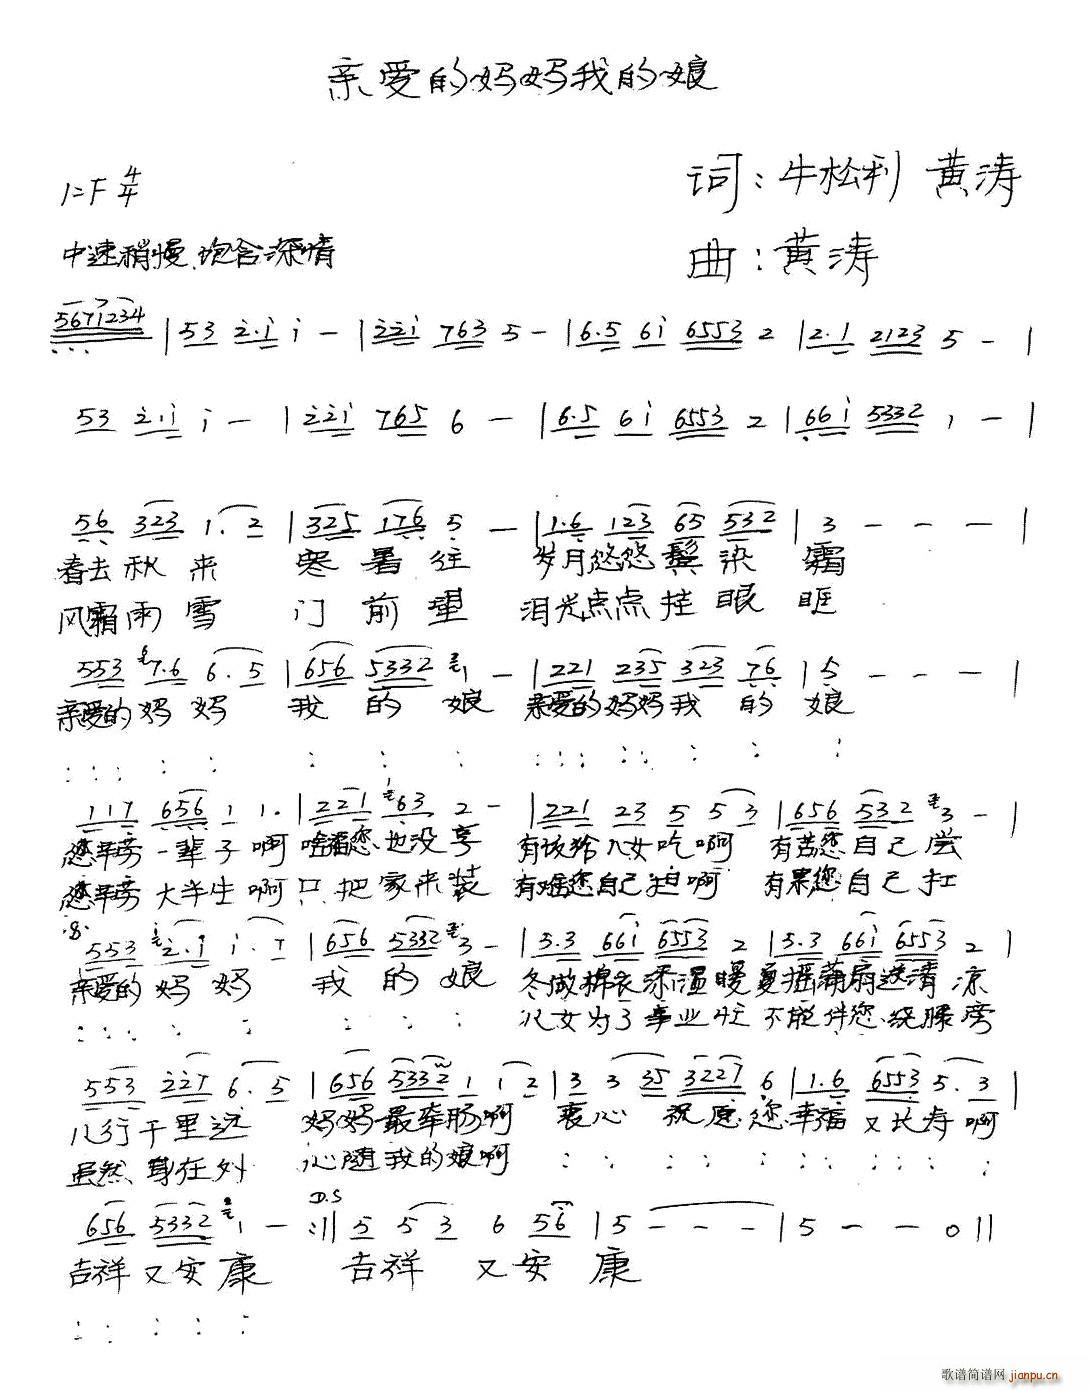 亲爱的妈妈我的娘
1=F 4/4
词：牛松利 黄涛
中速稍慢、饱含深情
曲：黄涛
5671234 | 53 2·1 1 - | 221 763 5 - | 6·5 61 6553 2 | 2·1 2123 5 - |
53 2·1 1 - | 221 765 6 - | 6·5 61 6553 2 | 661 5332 1 - |
56 323 1·2 | 325 176 5 - | 1·6 123 65 532 | 3 - - - |
春去秋来 寒暑往 岁月悠悠鬓染霜
风霜雨雪 门前望 泪光点点挂眼眶
553 7·6 6·5 | 656 5332 1 - | 221 235 323 76 | 5 - - - |
亲爱的妈妈 我的娘 亲爱的妈妈我的娘
117 656 1 1· | 221 63 2 - | 221 23 5 5 3 | 656 532 3 - |
您辛劳一辈子啊 啥福您也没享 有该给儿女吃啊 有苦您自己尝
您辛劳大半生啊 只把家来装 有啥您自己担啊 有累您自己扛
553 2·1 1·7 | 656 5332 3 - | 5·3 661 6553 2 | 5·3 661 6553 2 |
亲爱的妈妈 我的娘 冬做棉衣添温暖 夏摇蒲扇送清凉
儿女为了事业忙 不能伴您绕膝旁
553 227 6·5 | 656 5332 1 1 2 | 3 3 35 3227 6 | 1·6 6553 5·3 |
儿行千里远 妈妈最牵肠啊 衷心祝愿您 幸福又长寿啊
虽然身在外 心随我的娘啊
D.S
656 5332 1 - :|| 5 5 3 6 56 1 | 5 - - - | 5 - - 0 ||
吉祥又安康 吉祥又安康
歌谱简谱网 jianpu.cn